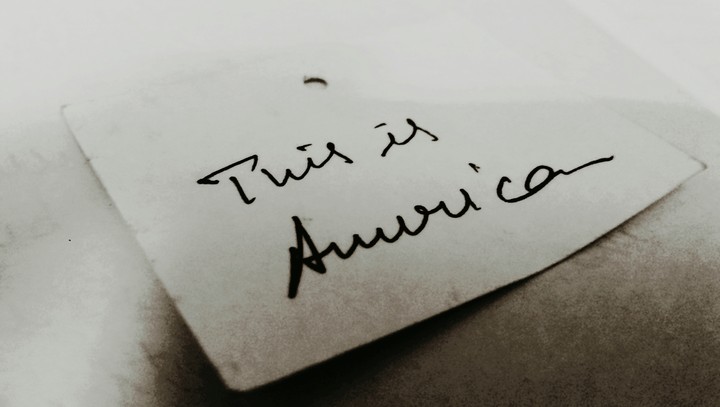 This is
America